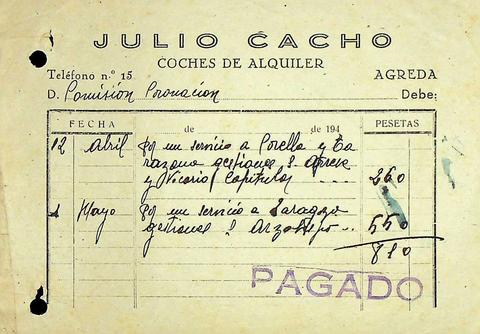 JULIO CACHO
COCHES DE ALQUILER
Teléfono n.º 15 AGREDA
D. Comisión Coronacion Debe:
FECHA de de 194 PESETAS
12 Abril Por un servicio a Corella y Ta
razona gestiones S.
y Vicario Capitular 260
1 Mayo Por un servicio a Zaragoza
gestiones S. Arzobispo 550
810
PAGADO